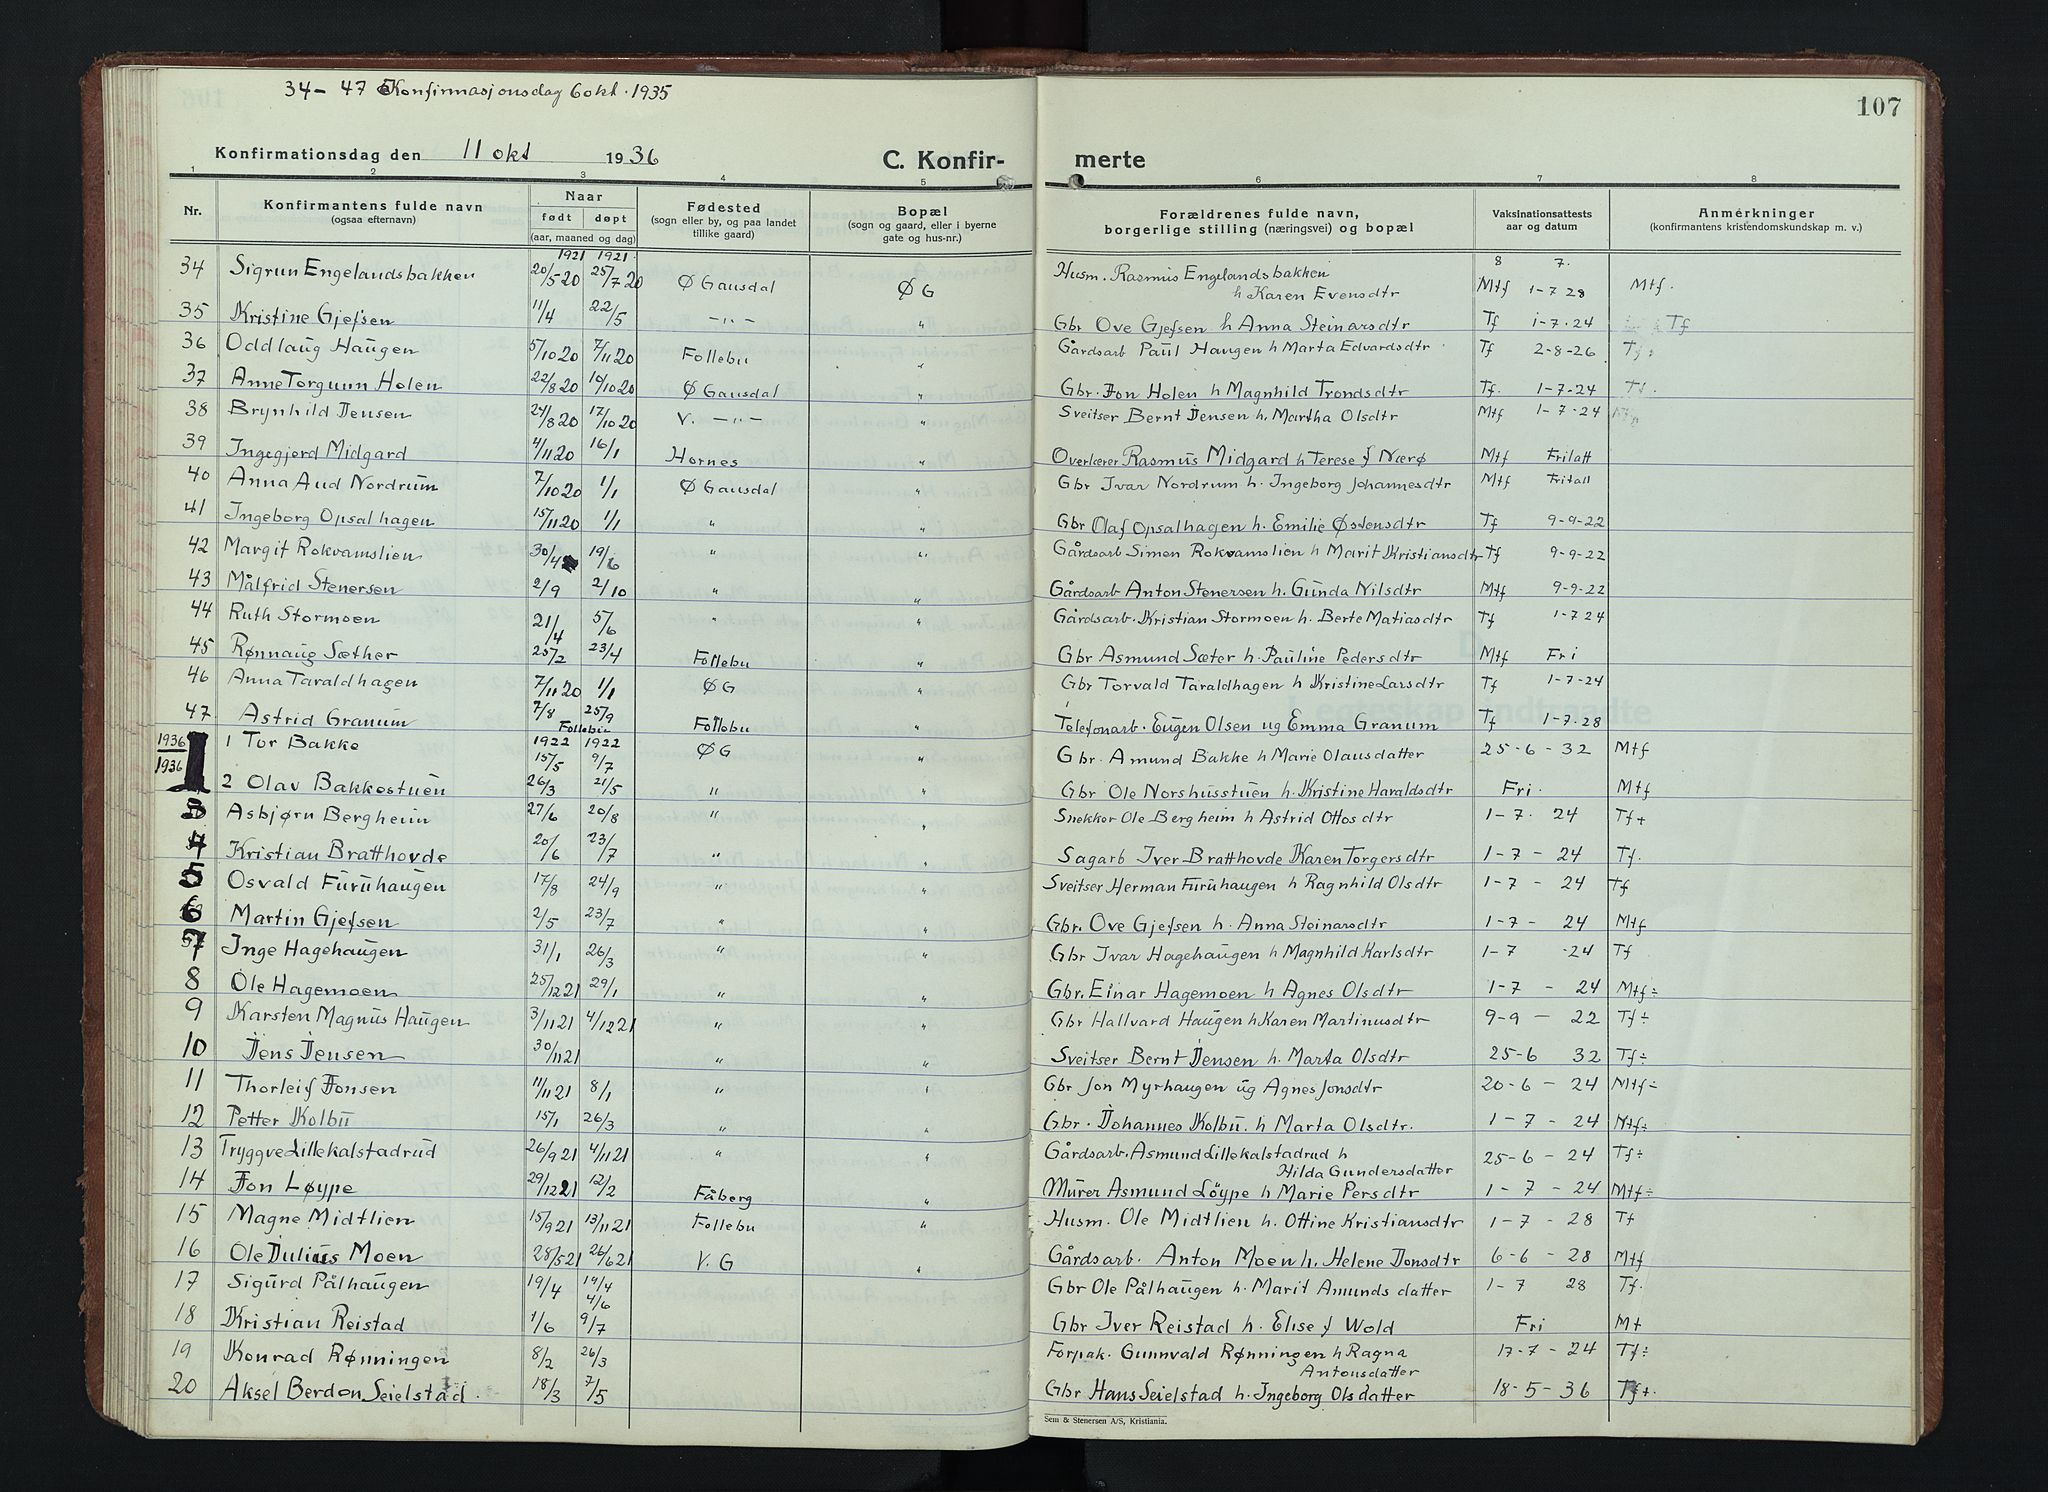 34- 47 Konfirmasjonsdag 6 okt. 1935
107
Konfirmationsdag den 11 okt 1936
C. Konfir- merte
1 2 3 4 5 6 7 8
Nr. Konfirmantens fulde navn (ogsaa efternavn) Naar født døpt (aar, maaned og dag) Fødested (sogn eller by, og paa landet tillike gaard) Bopæl (sogn og gaard, eller i byerne gate og hus-nr.) Forældrenes fulde navn, borgerlige stilling (næringsvei) og bopæl Vaksinationsattests aar og datum Anmerkninger (konfirmantens kristendomskundskap m. v.)
1921 1921. 8 7.
34 Sigrun Engelandsbakken 20/5 20 25/7 20 Ø Gausdal ØG Husm. Rasmus Engelandsbakken h Karen Evensdtr Mtf 1-7 28 Mtf.
35 Kristine Gjefsen 11/4 22/5 -"- " Gbr Ove Gjefsen h Anna Steinarsdtr Tf 1-7-24 Tf
36 Oddlaug Haugen 5/10 20 7/11 20 Follebu " Gårdsarb Paul Haugen h Marta Edvardsdtr Tf 2-8-26 Tf÷
37 Anne Torgunn Holen 22/8 20 10/10 20 Ø Gausdal " Gbr. Jon Holen h Magnhild Trondsdtr Tf. 1-7-24 Tf.
38 Brynhild Jensen 24/8 20 17/10 20 V. -"- " Sveitser Bernt Jensen h. Martha Olsdtr Mtf 1-7-24
39 Ingegjerd Midgard 4/11 20 16/1 Hornes " Overlærer Rasmus Midgard h Terese f Nærø Mtf Fritatt
40 Anna Aud Nordrum 7/10 20 1/1 Ø Gausdal " Gbr Ivar Nordrum h. Ingeborg Johannesdtr Mtf Fritatt
41 Ingeborg Opsalhagen 15/11 20 1/1 " " Gbr Olaf Opsalhagen h. Emilie Østensdtr Tf 9-9-22
42 Margit Rokvamslien 30/4 19/6 " " Gårdsarb Simen Rokvamslien h Marit Kristiansdtr Tf 9-9-22
43 Målfrid Stenersen 2/9 2/10 " " Gårdsarb Anton Stenersen h. Gunda Nilsdtr Mtf 9-9-22
44 Ruth Stormoen 21/4 5/6 " " Gårdsarb. Kristian Stormoen h. Berte Matiasdtr Tf 1-7 24
45 Rønnaug Sæther 25/2 23/4 Follebu " Gbr Asmund Sæter h. Pauline Pedersdtr Mtf Fri
46 Anna Taraldhagen 7/11 20 1/1 ØG " Gbr Torvald Taraldhagen h Kristine Larsdtr Tf 1-7-24
47 Astrid Granum 7/8 25/9 Follebu Follebu " Telefonarb. Eugen Olsen ug Emma Granum Tf 1-7-28
1936 1936
1 Tor Bakke 1922 15/5 1922 9/7 ØG " Gbr. Amund Bakke h Marie Olausdatter 25-6-32 Mtf
2 Olav Bakkostuen 26/3 21/5 " " Gbr Ole Norshusstuen h. Kristine Haraldsdtr Fri. Mtf
3 Asbjørn Bergheim 27/6 20/8 " " Snekker Ole Bergheim h Astrid Ottosdtr 1-7. 24 Tf+
4 Kristian Bratthovde 20/6 23/7 " " Sagarb Iver Bratthovde Karen Torgersdtr 1-7 - 24 Tf.
5 Osvald Furuhaugen 17/8 24/9 " " Sveitser Herman Furuhaugen h Ragnhild Olsdtr 1-7 - 24 Tf
6 Martin Gjefsen 2/5 23/7 " " Gbr. Ove Gjefsen h. Anna Steinarsdtr 1-7- 24 Mtf
7 Inge Hagehaugen 31/1 26/3 " " Gbr Ivar Hagehaugen h Magnhild Karlsdtr 1-7 -24 Tf
8 Ole Hagemoen 25/12 21 29/1 " " Gbr. Einar Hagemoen h Agnes Olsdtr 1-7 - 24 Mtf÷
9 Karsten Magnus Haugen 3/11 21 4/12 21 " " Gbr Hallvard Haugen h Karen Martinusdtr 9-9 - 22 Tf÷
10 Jens Jensen 30/11 21 " " Sveitser Bernt Jensen h. Marta Olsdtr 25-6 32 Tf÷
11 Thorleif Jonsen 11/11 21 8/1 " " Gbr Jon Myrhaugen ug Agnes Jonsdtr 20-6 - 24 Mtf÷
12 Petter Kolbu 15/1 26/3 " " Gbr. Johannes Kolbu. h Marta Olsdtr. 1-7 - 24 Mtf÷
13 Tryggve Lillekalstadrud 26/9 21 4/11 21 " " Gårdsarb. Asmund Lillekalstadrud h Hilda Gundersdatter 25-6 - 24 Tf÷
14 Jon Løype 29/12 21 12/2 Fåberg " Murer Asmund Löype h Marie Persdtr 1 - 7 - 24 Mtf÷
15 Magne Midtlien 15/9 21 13/11 21 Follebu " Husm. Ole Midtlien h. Ottine Kristiansdtr 1-7 - 28 Tf
16 Ole Julius Moen 28/5 21 26/6 21 V. G " Gårdsarb. Anton Moen h. Helene Jonsdtr 6-6 - 28 Mtf
17 Sigurd Pålhaugen 19/4 19/4 4/6 Gbr Ole Pålhaugen h. Marit Amundsdatter 1-7 28 Tf.
18 Kristian Reistad 1/6 9/7 Gbr Iver Reistad h. Elise f Wold Fri Mt
19 Konrad Rønningen 8/2 26/3 Forpak. Gunnvald Rønningen h Ragna Antonsdatter 17-7 - 24 Tf÷
20 Aksel Berdon Seielstad. 18/3 7/5 Gbr Hans Seielstad h. Ingeborg Olsdatter 18-5-36 Tf+.
Sem & Stenersen A/S, Kristiania.